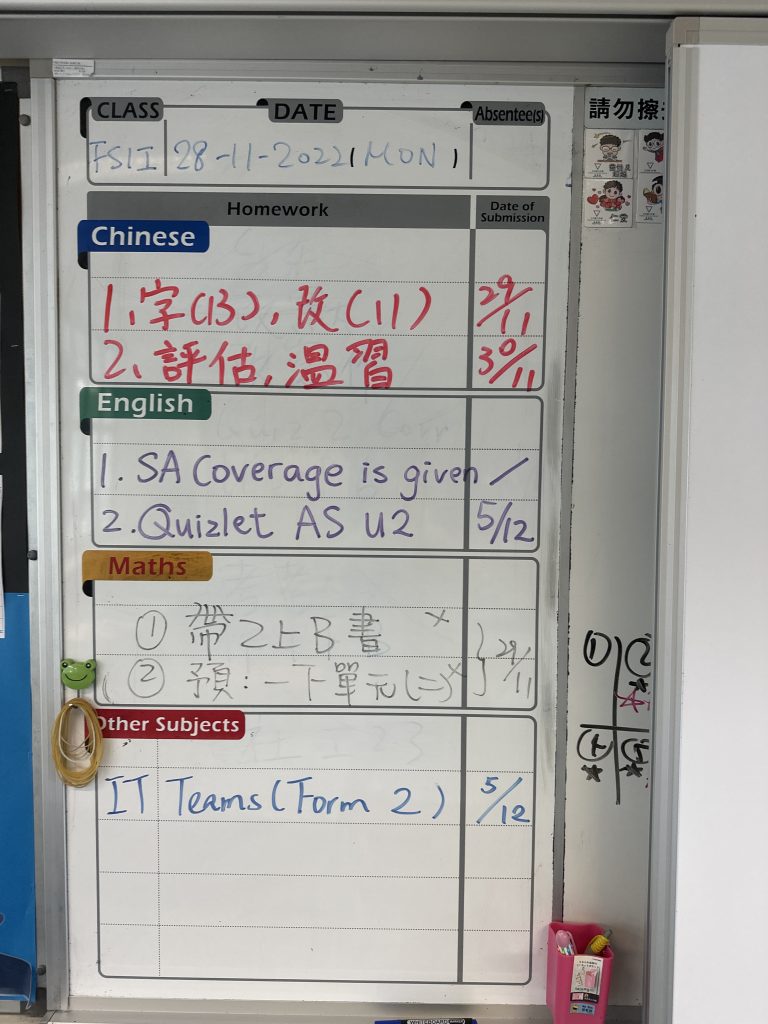 CLASS DATE Absentee(s)
28-11-2022 (MON)
請勿擦
Homework Date of Submission
Chinese
1、字(13)，改(11) 29/11
2、評估，溫習 30/11
English
1. SA Coverage is given /
2. Quizlet AS U2 5/12
Maths
① 帶2上B書 x
② 預：一下單元(二) x } 29/11
Other Subjects
IT Teams (Form 2) 5/12
仁愛